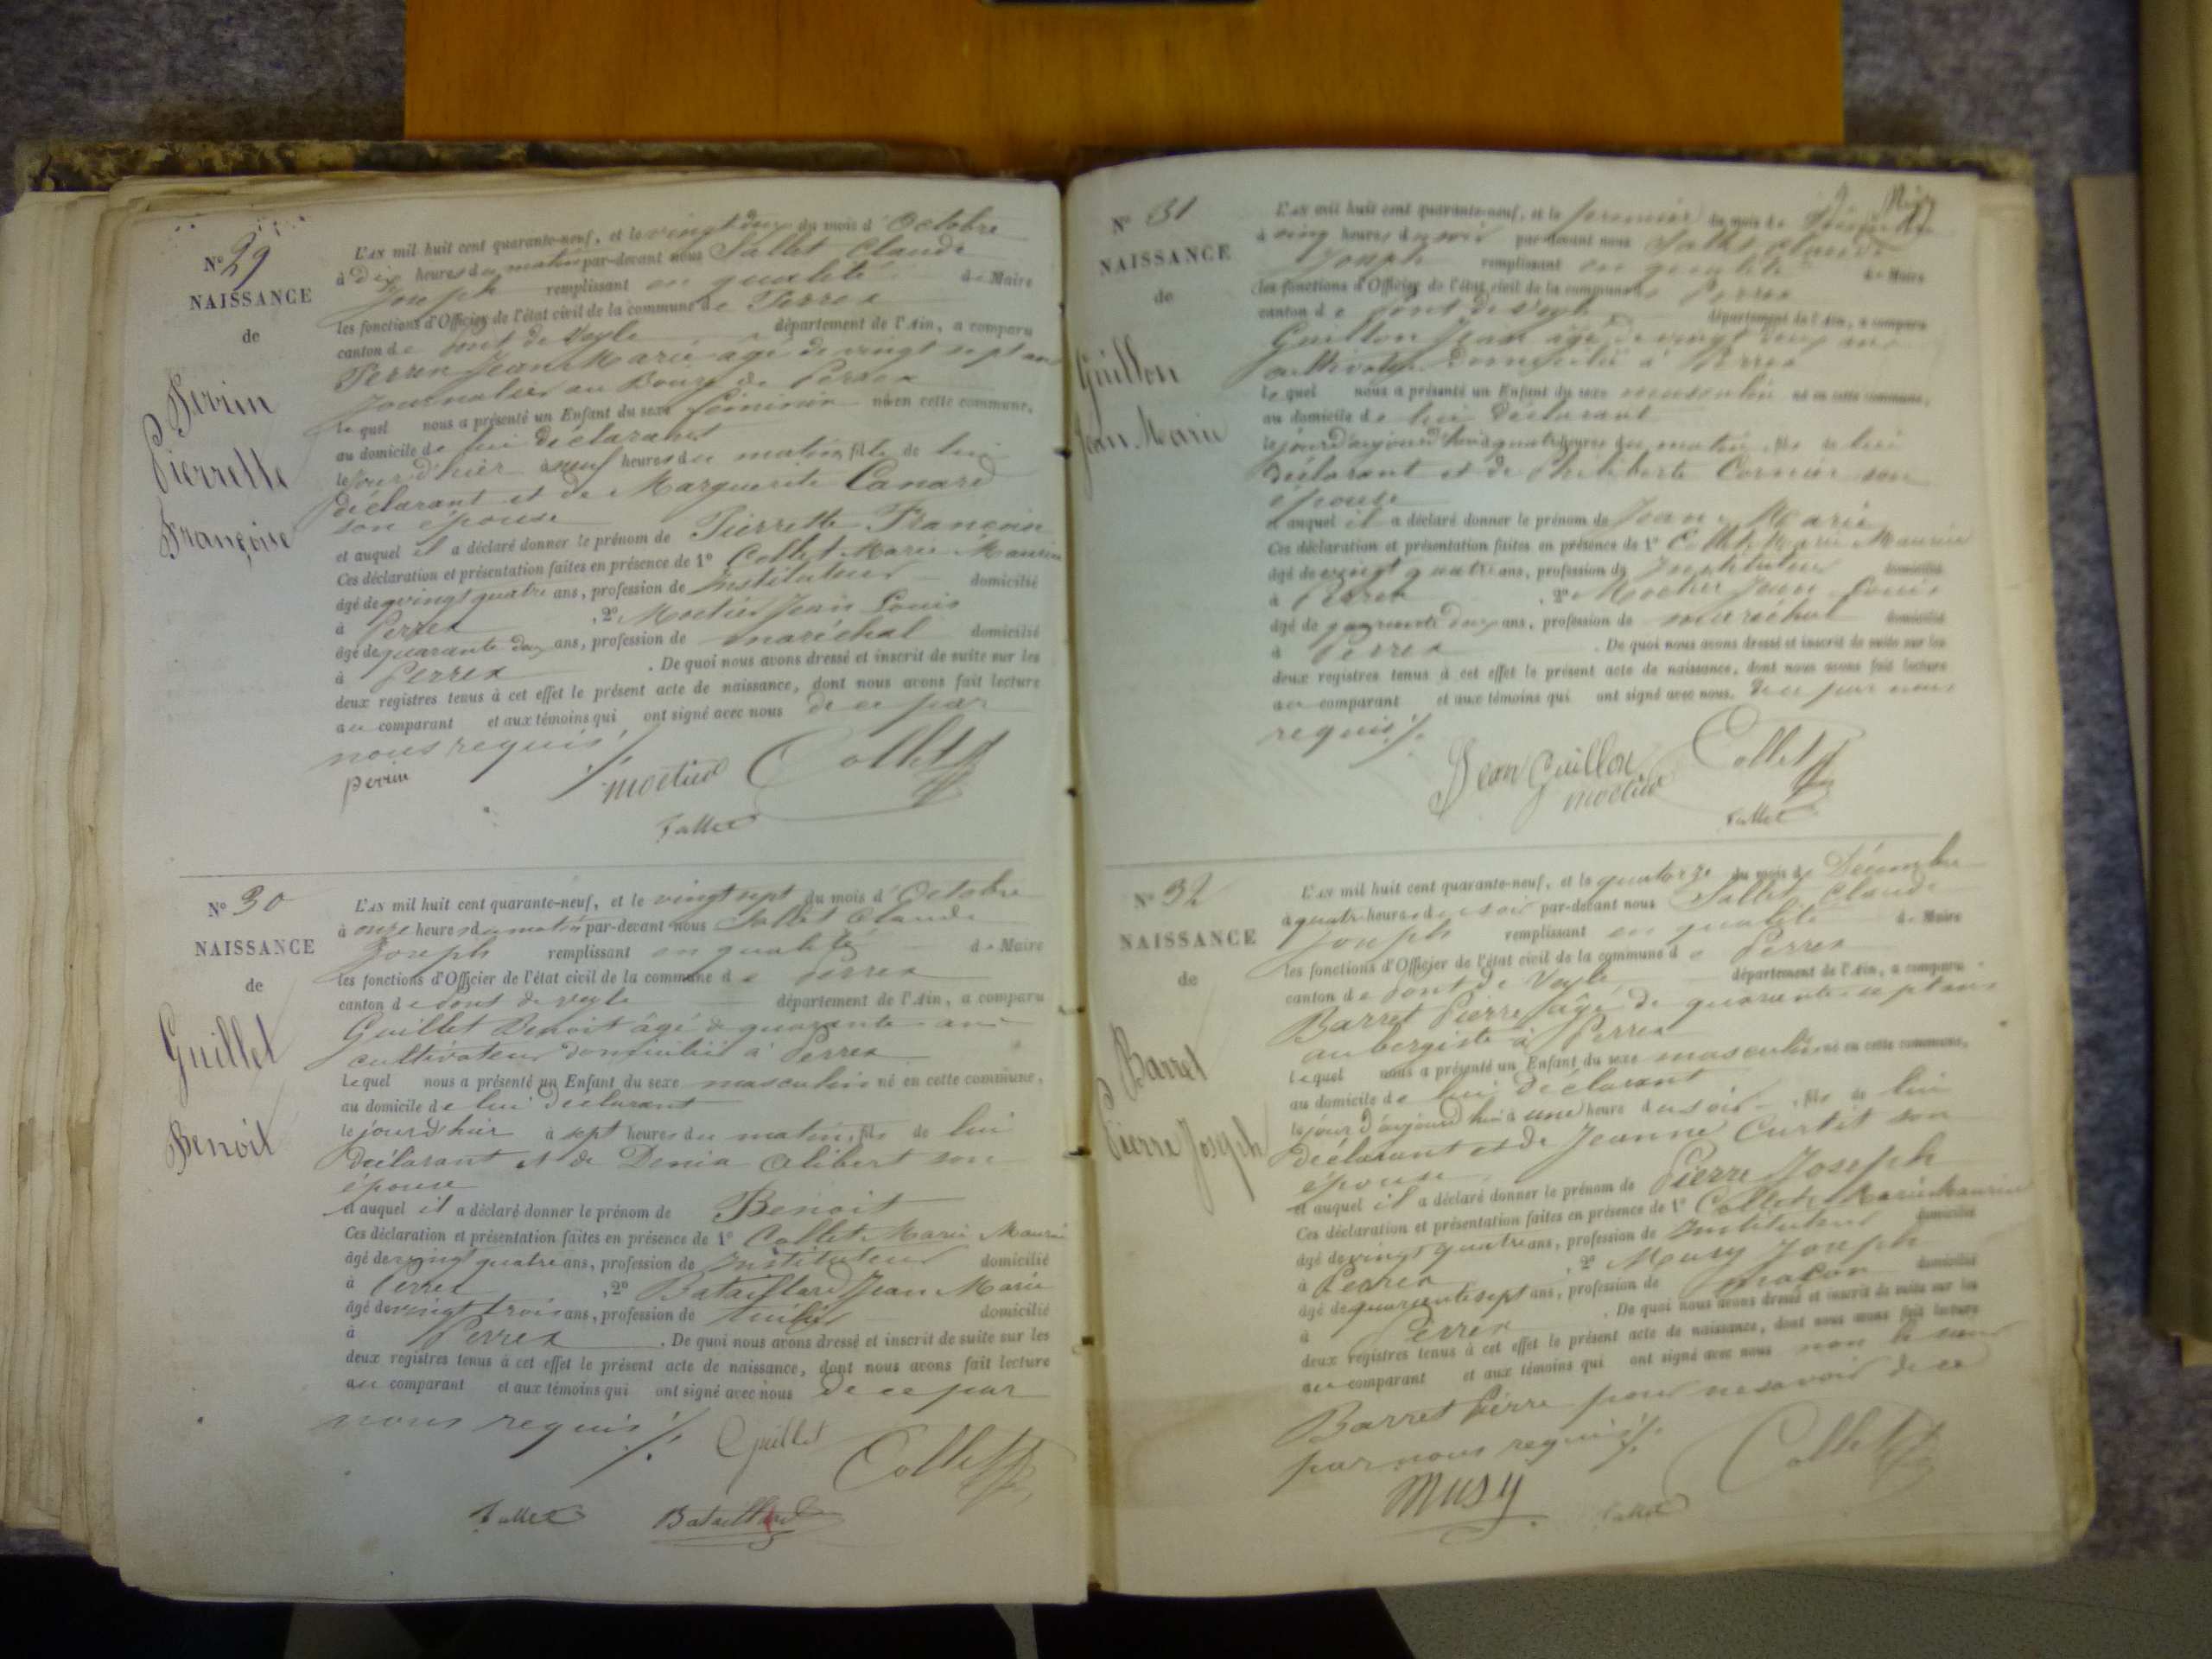 N° 29
NAISSANCE
de
Perrin
Pierrette
Françoise
L'AN mil huit cent quarante-neuf, et le vingt deux du mois d'Octobre
à Dix heures du matin par-devant nous Sallet Claude
Joseph remplissant en qualité de Maire
les fonctions d'Officier de l'état civil de la commune de Perrex
canton de Pont de Veyle département de l'Ain, a comparu
Perrin Jean Marie âgé de vingt sept ans
Journalier au Bourg de Perrex
Lequel nous a présenté un Enfant du sexe féminin né en cette commune,
au domicile de lui déclarant
le jour d'hier à neuf heures du matin, fille de lui
déclarant et de Marguerite Canard
son épouse
et auquel il a déclaré donner le prénom de Pierrette Françoise
Ces déclaration et présentation faites en présence de 1° Collet Marie Maurice
âgé de vingt quatre ans, profession de Instituteur domicilié
à Perrex , 2° Moetier Jean Louis
âgé de quarante deux ans, profession de maréchal domicilié
à Perrex . De quoi nous avons dressé et inscrit de suite sur les
deux registres tenus à cet effet le présent acte de naissance, dont nous avons fait lecture
au comparant et aux témoins qui ont signé avec nous de ce par
nous requis ./.
perrin moetier Collet
Sallet
N° 30
NAISSANCE
de
Guillet
Benoit
L'AN mil huit cent quarante-neuf, et le vingt sept du mois d'Octobre
à onze heures du matin par-devant nous Sallet Claude
Joseph remplissant en qualité de Maire
les fonctions d'Officier de l'état civil de la commune de Perrex
canton de Pont de Veyle département de l'Ain, a comparu
Guillet Benoit âgé de quarante ans
cultivateur domicilié à Perrex
Lequel nous a présenté un Enfant du sexe masculin né en cette commune,
au domicile de lui déclarant
le jour d'hier à sept heures du matin, fils de lui
déclarant et de Denia Alibert son
épouse
et auquel il a déclaré donner le prénom de Benoit
Ces déclaration et présentation faites en présence de 1° Collet Marie Maurice
âgé de vingt quatre ans, profession de Instituteur domicilié
à Perrex , 2° Bataillard Jean Marie
âgé de vingt trois ans, profession de tuilier domicilié
à Perrex . De quoi nous avons dressé et inscrit de suite sur les
deux registres tenus à cet effet le présent acte de naissance, dont nous avons fait lecture
au comparant et aux témoins qui ont signé avec nous de ce par
nous requis ./. Guillet Collet
Sallet Bataillard
N° 31
NAISSANCE
de
Guillon
Jean Marie
L'AN mil huit cent quarante-neuf, et le premier du mois de
à cinq heures du soir par-devant nous Sallet Claude
Joseph remplissant en qualité de Maire
les fonctions d'Officier de l'état civil de la commune de Perrex
canton de Pont de Veyle département de l'Ain, a comparu
Guillon Jean âgé de vingt ans
cultivateur domicilié à Perrex
Lequel nous a présenté un Enfant du sexe masculin né en cette commune,
au domicile de lui déclarant
le jour d'aujourd'hui à quatre heures du matin, fils de lui
déclarant et de Philiberte Cornier son
épouse
et auquel il a déclaré donner le prénom de Jean Marie
Ces déclaration et présentation faites en présence de 1° Collet Marie Maurice
âgé de vingt quatre ans, profession de Instituteur domicilié
à Perrex , 2° Moetier Jean Louis
âgé de quarante deux ans, profession de maréchal domicilié
à Perrex . De quoi nous avons dressé et inscrit de suite sur les
deux registres tenus à cet effet le présent acte de naissance, dont nous avons fait lecture
au comparant et aux témoins qui ont signé avec nous. de ce par nous
requis ./.
Jean Guillon Collet
moetier
Sallet
N° 32
NAISSANCE
de
Barret
Pierre Joseph
L'AN mil huit cent quarante-neuf, et le quatorze du mois de Décembre
à quatre heures du soir par-devant nous Sallet Claude
Joseph remplissant en qualité de Maire
les fonctions d'Officier de l'état civil de la commune de Perrex
canton de Pont de Veyle département de l'Ain, a comparu
Barret Pierre âgé de quarante sept ans
aubergiste à Perrex
Lequel nous a présenté un Enfant du sexe masculin né en cette commune,
au domicile de lui déclarant
le jour d'aujourd'hui à une heure du soir, fils de lui
déclarant et de Jeanne Curtit son
épouse
et auquel il a déclaré donner le prénom de Pierre Joseph
Ces déclaration et présentation faites en présence de 1° Collet Marie Maurice
âgé de vingt quatre ans, profession de Instituteur domicilié
à Perrex , 2° Musy Joseph
âgé de quarante sept ans, profession de maçon domicilié
à Perrex . De quoi nous avons dressé et inscrit de suite sur les
deux registres tenus à cet effet le présent acte de naissance, dont nous avons fait lecture
au comparant et aux témoins qui ont signé avec nous non le sieur
Barret Pierre pour ne savoir de ce
par nous requis ./.
MUSY Collet
Sallet